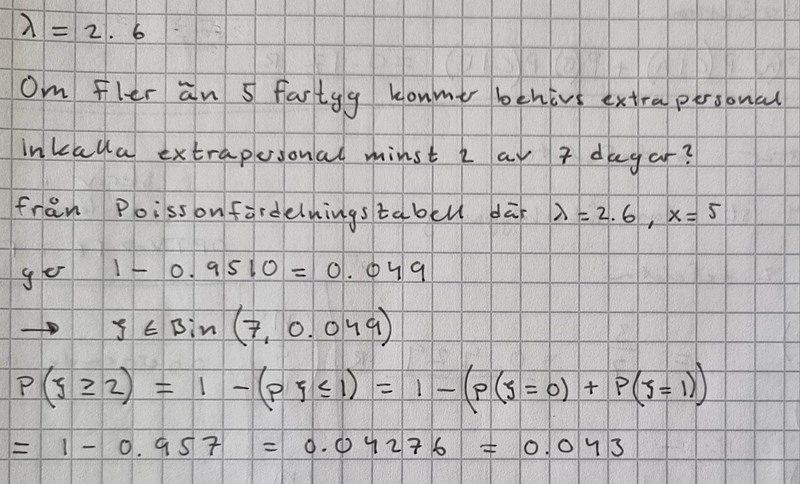 λ = 2.6
Om fler än 5 fartyg kommer behövs extrapersonal
Inkalla extrapersonal minst 2 av 7 dagar?
från Poissonfördelningstabell där λ = 2.6, x = 5
ger 1 - 0.9510 = 0.049
→ ξ ∈ Bin (7, 0.049)
P(ξ ≥ 2) = 1 - (P ξ ≤ 1) = 1 - (P(ξ = 0) + P(ξ = 1))
= 1 - 0.957 = 0.04276 = 0.043